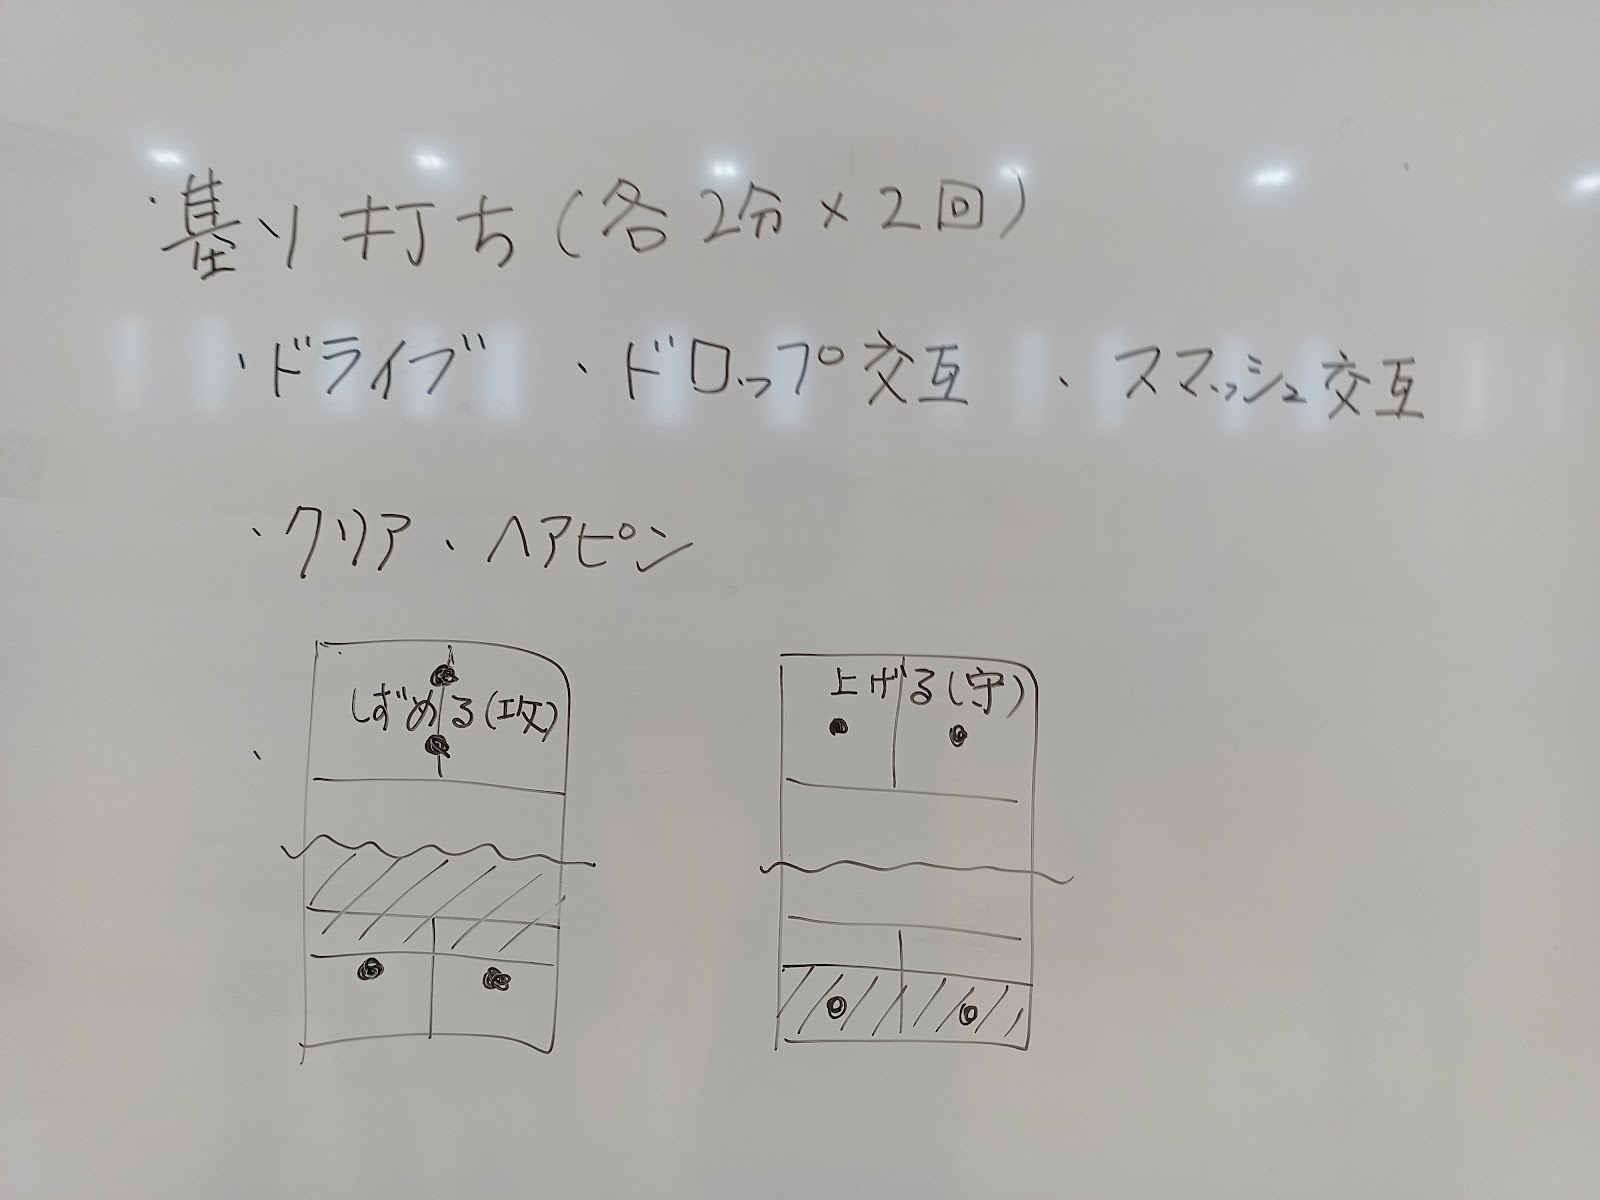 ・基ソ打ち(各2分×2回)
・ドライブ ・ドロップ交互 ・スマッシュ交互
・クリア ・ヘアピン
・
しずめる(攻)
上げる(守)